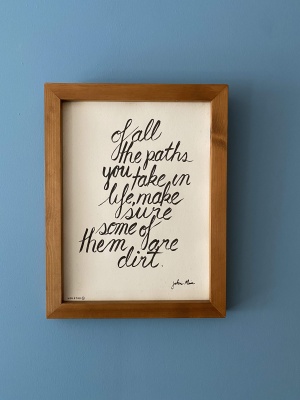 of all
the paths
you take in
life, make
sure
some of
them are
dirt.
John Muir